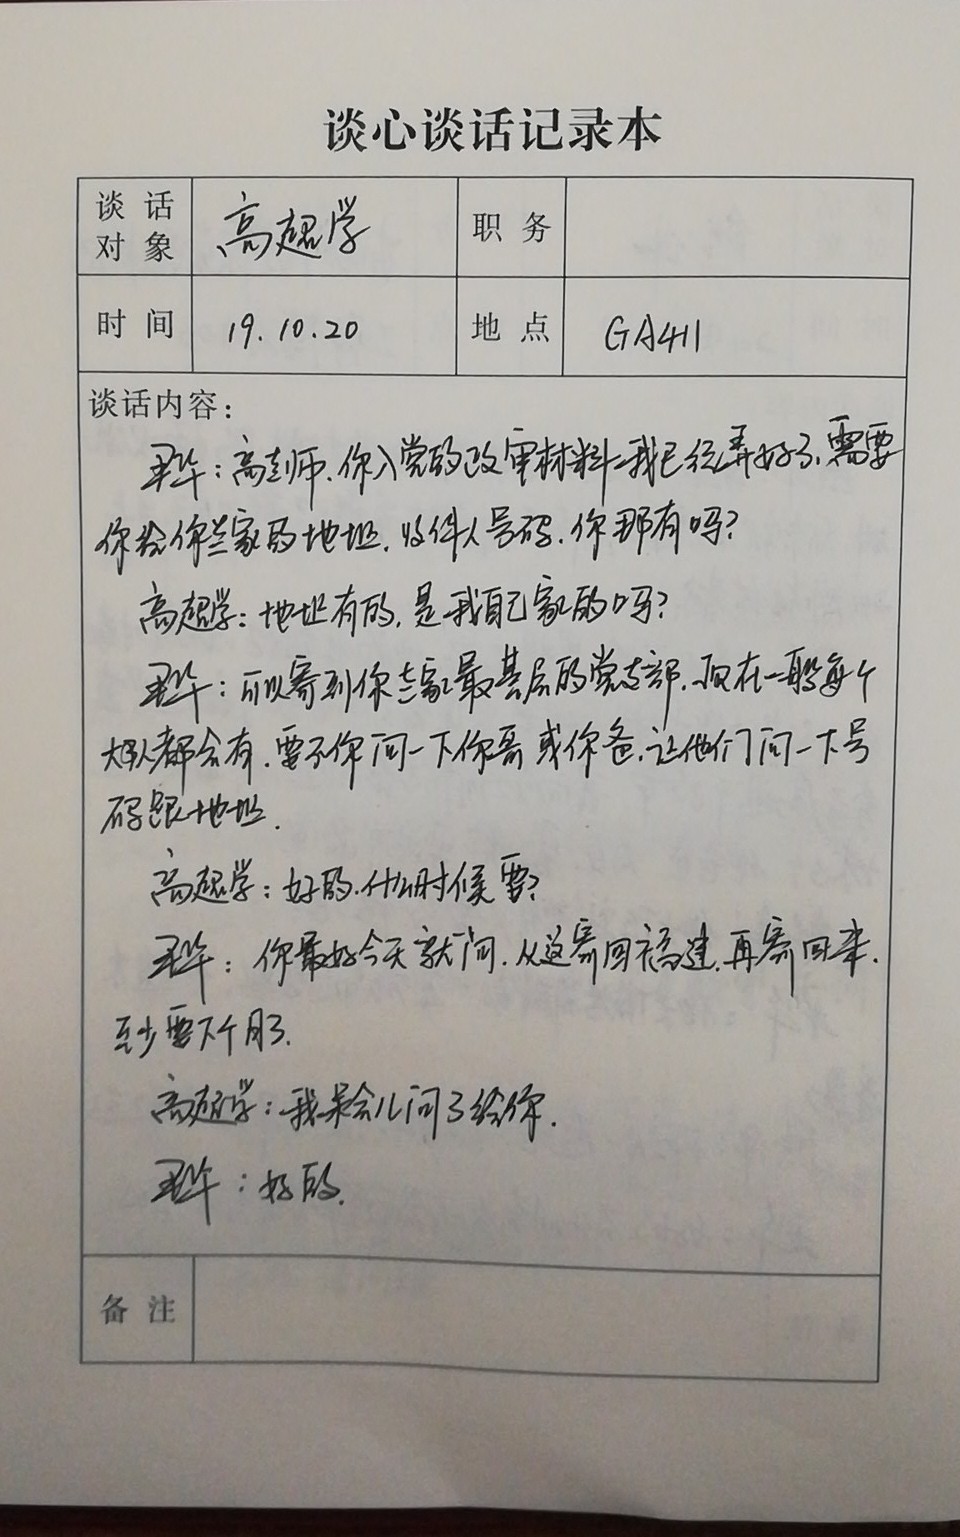 谈心谈话记录本
谈话对象 高超学 职务
时间 19.10.20 地点 GA411
谈话内容：
：高老师，你入党的政审材料我已经弄好了，需要
你给你老家的地址，收件人号码，你那有吗？
高超学：地址有的，是我自己家的吗？
：可以寄到你老家最基层的党支部，现在一般每个
大队都会有，要不你问一下你哥或你爸，让他们问一下号
码跟地址.
高超学：好的，什么时候要？
：你最好今天就问，从这寄回福建，再寄回来，
至少要下个月了.
高超学：我待会儿问了给你.
：好的.
备注